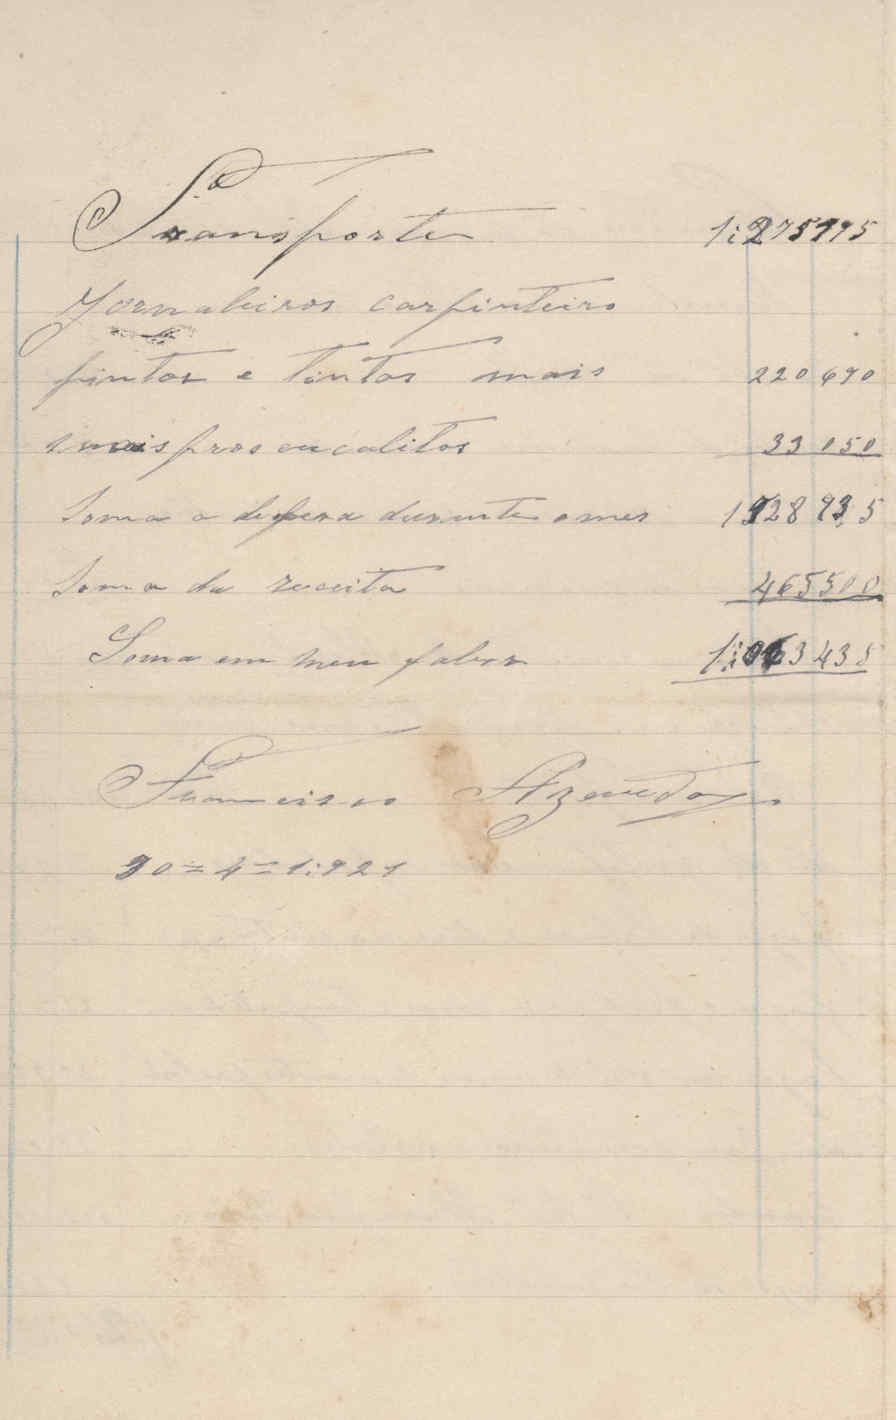 Transporte 1:275195
Jornaleiros carpinteiro
pintor e tintas mais 220 690
mais pros oucalitos 33 050
Soma a depesa durante o mes 1528 935
Soma da receita 465500
Soma em meu fabor 1:063 435
Francisco Azevedo
30=4=1:921